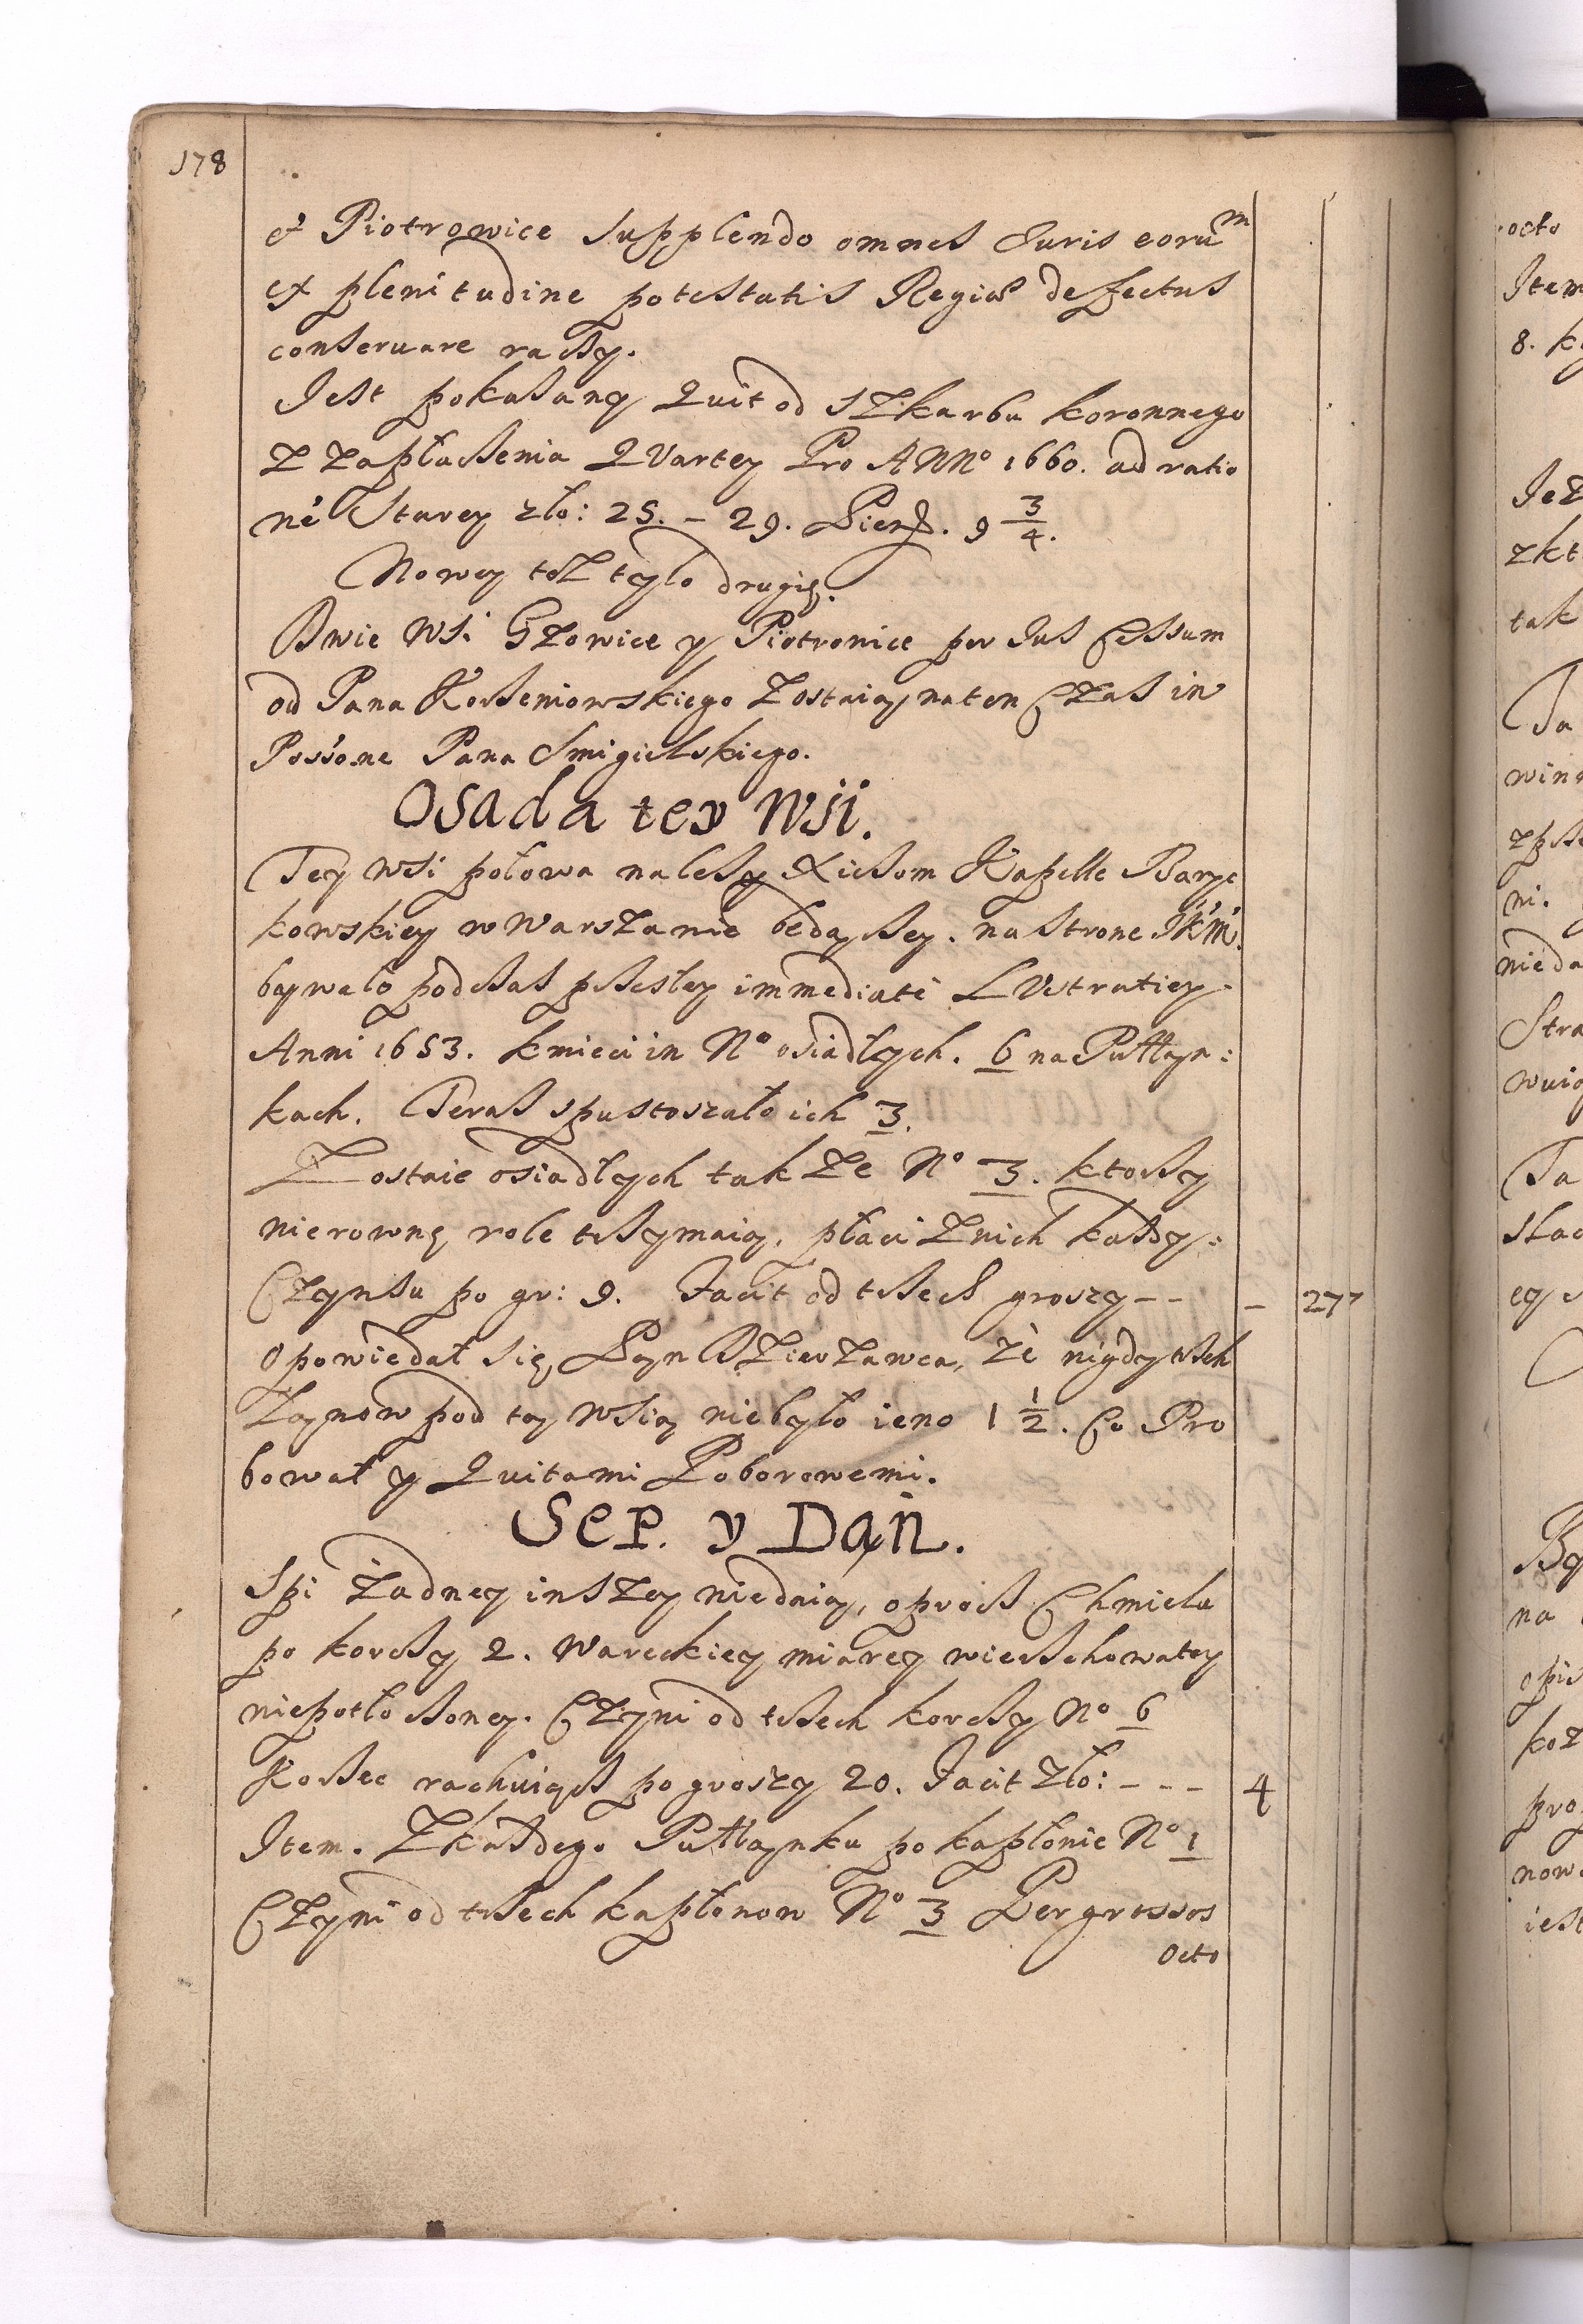 178
et Piotrowice supplendo omnes Iuris eorum
ex plenitudine potestatis Regiæ defectus
conseruare raczy.
Iest pokazany Quit od Szkarbu koronnego
z zapłaczenia QVartey Pro ANNo 1660. ad ratio
nē Starey zło: 25. - 29. Pienḍ. 9 3/4.
Nowey tesz tylo drugię.
Dwie Wsi Gzowice y Piotrowice per Ius Cessum
od Pana Korzeniowskiego zostaią na ten Czas in
Possone Pana Smigielskiego.
Osada tey Wsii.
Tey Wsi połowa nalezy Xięzom Kapelle Bary
kowskiey w Warszawie będączey. na Strone JKM.
bywało podczas przeszłey immediate LVstratiey
Anni 1653. kmieci in No osiadłych. 6 na Pułłan:
kach. Teraz spustoszało ich 3.
Zostaie osiadłych takze No 3. ktorzy
nierownę role trzymaią, płaci znich każdy:
Czynszu po gr: 9. Facit od trzech groszy -- - 277
Opowiedał się Pan Dzierzawca, że nigdy trzech
Łanow pod tą Wsią niebyło ieno 1 1/2. Co Pro
bował y Quitami Poborowemi.
Sep. y Dań.
Spi żadney inszey niedaią, oprocz Chmielu
po korczy 2. Wareckiey miarey wierzchowatey
niepotłoczoney. Czyni od trzech korczy No 6
Korzec rachuiącz po groszy 20. Facit zło: --- 4
Item. Zkażdego Pułłanku po kapłonie No 1
Czyni od trzech kapłonow No 3 Per grossos
octo
octo
Item
8.
tak
ni.
Ta
na